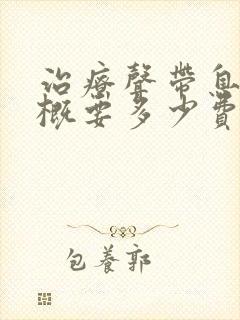 治療聲帶息
概要多少費
包養郭